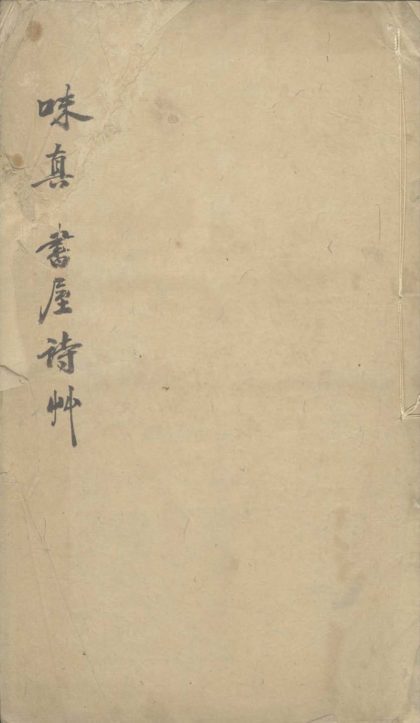 味真書屋詩艸